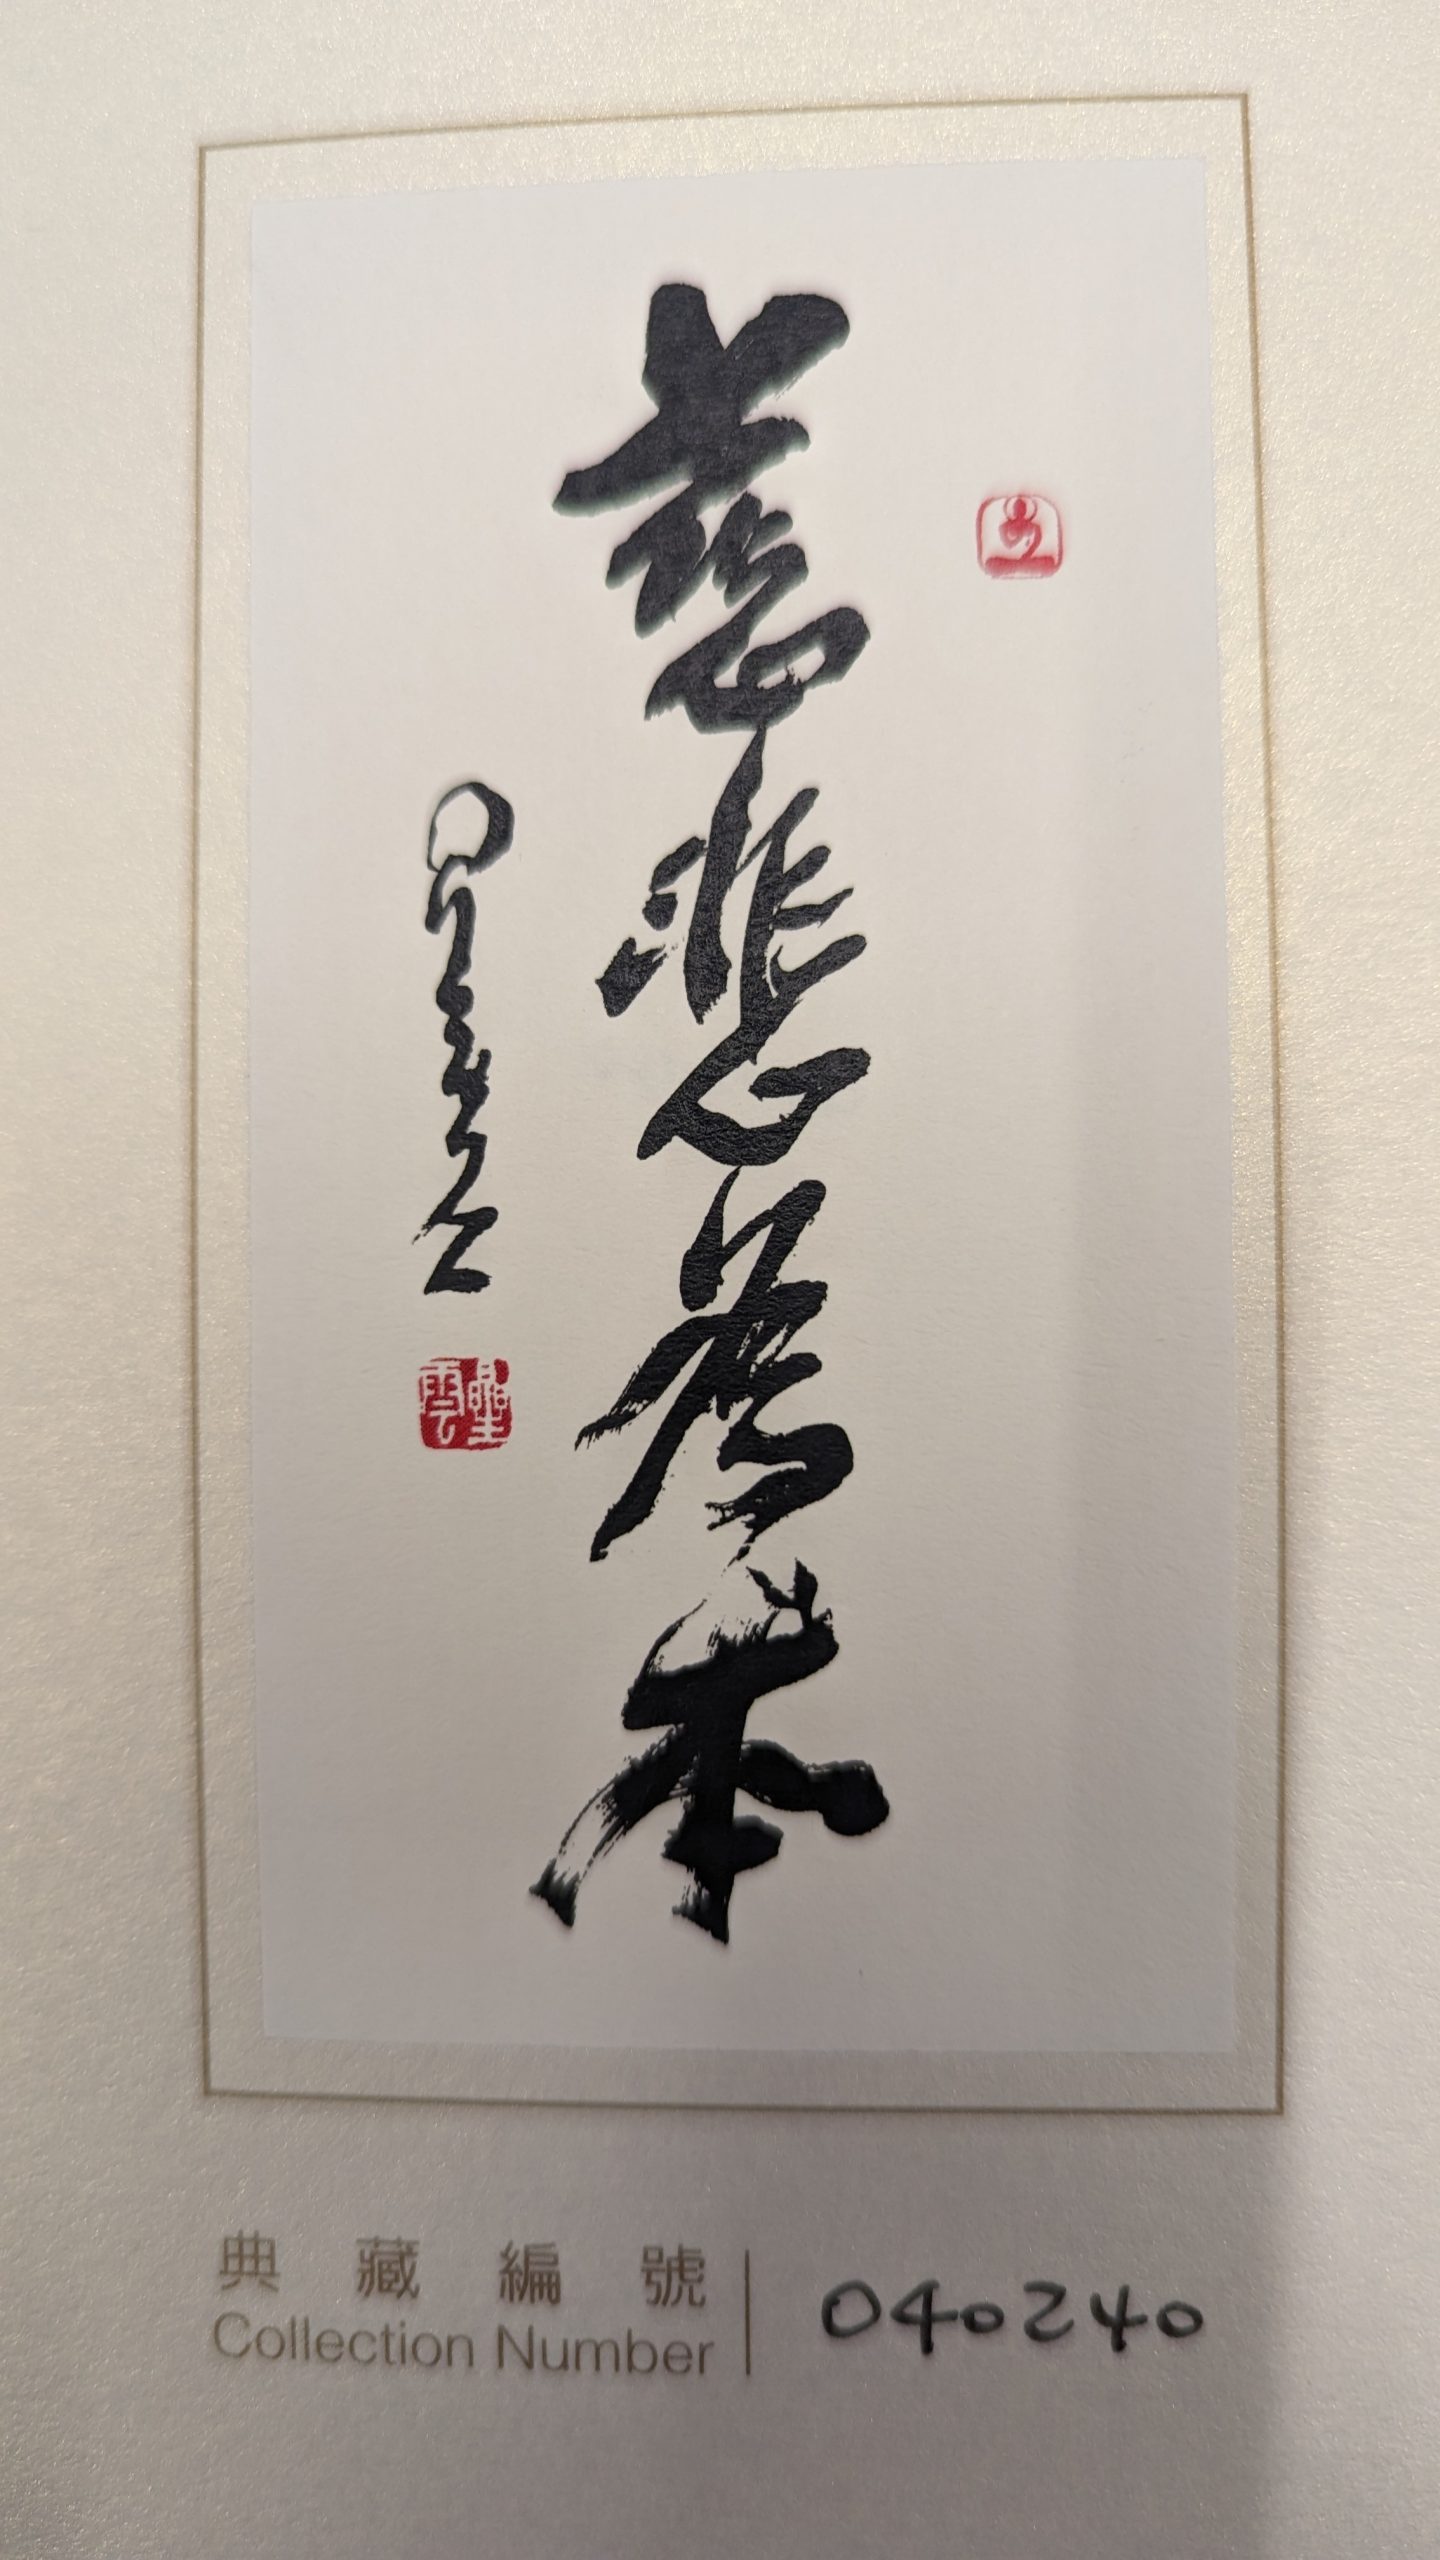 慈悲為本
星雲
星雲
典藏編號
Collection Number
040240